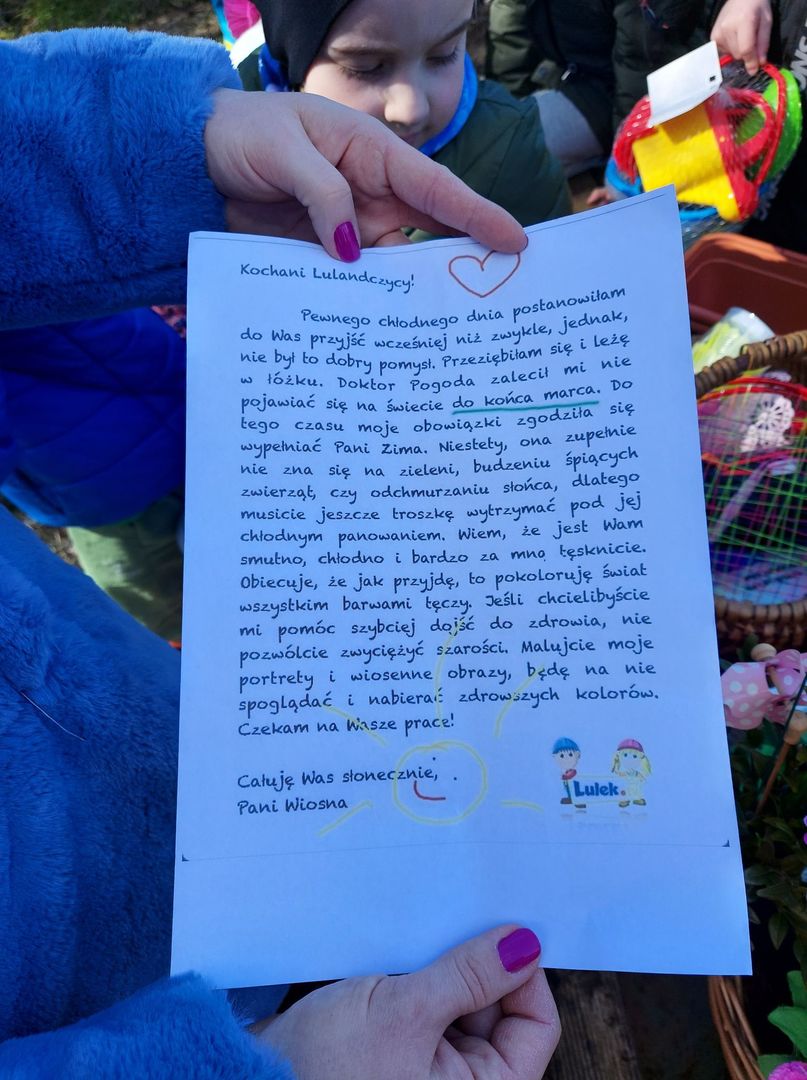 Kochani Lulandczycy!
Pewnego chłodnego dnia postanowiłam
do Was przyjść wcześniej niż zwykle, jednak,
nie był to dobry pomysł. Przeziębiłam się i leżę
w łóżku. Doktor Pogoda zalecił mi nie
pojawiać się na świecie do końca marca. Do
tego czasu moje obowiązki zgodziła się
wypełniać Pani Zima. Niestety, ona zupełnie
nie zna się na zieleni, budzeniu śpiących
zwierząt, czy odchmurzaniu słońca, dlatego
musicie jeszcze troszkę wytrzymać pod jej
chłodnym panowaniem. Wiem, że jest Wam
smutno, chłodno i bardzo za mną tęsknicie.
Obiecuje, że jak przyjdę, to pokoloruję świat
wszystkim barwami tęczy. Jeśli chcielibyście
mi pomóc szybciej dojść do zdrowia, nie
pozwólcie zwyciężyć szarości. Malujcie moje
portrety i wiosenne obrazy, będę na nie
spoglądać i nabierać zdrowszych kolorów.
Czekam na Wasze prace!
Całuję Was słonecznie,
Pani Wiosna
Lulek.